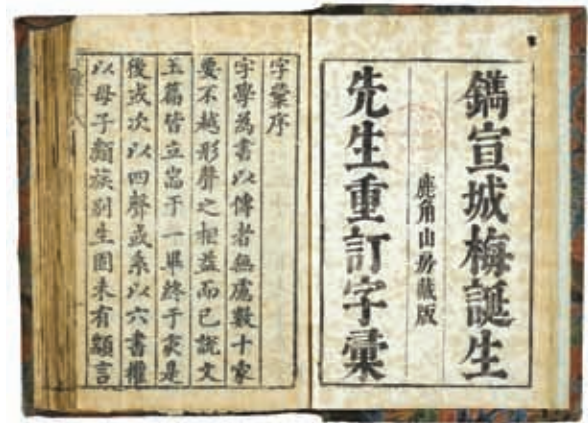 鐫宣城梅誕生
鹿角山房藏版
先生重訂字彙
字彙序
字學為書以傳者無慮數十家
要不越形聲之相益而已說文
玉篇皆立耑于一畢終于亥是
後或次以四聲或系以六書權
以母子類族別生固未有顓言